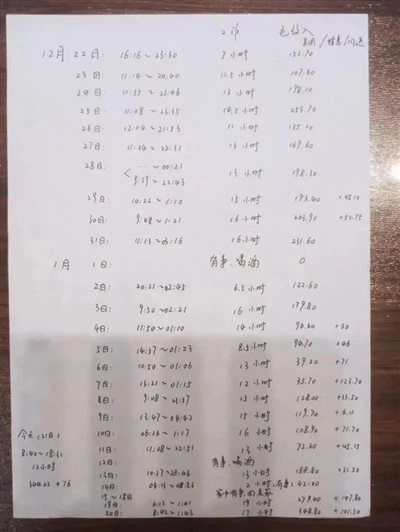 工作 毛收入
/蜂鸟/闪送
12月 22日: 16:16~23:30 7小时 152.70
23日: 11:14~20:40 11.5小时 107.60
24日: 11:35~22:46 13小时 198.10
25日: 11:08~23:35 14.5小时 253.70
26日: 12:04~21:53 11小时 135.10
27日: 11:24~22:31 13小时 169.60
28日: ~00:21
9:39~22:43 13小时 198.30
29日: 10:22~1:10 15小时 193.40 +45.10
30日: 9:48~1:21 16小时 203.90 +52.75
31日: 11:13~03:16 16小时 231.60
1月 1日: 有事、喝酒 0
2日: 20:21~02:45 6.5小时 122.60
3日: 9:50~02:21 16小时 179.80
4日: 11:50~01:10 14小时 96.60 +60
5日: 14:37~01:23 8.5小时 94.70 +46
6日: 10:50~01:06 13小时 39.20 +71
7日: 13:21~01:15 12小时 35.70 +123.70
8日: 9:08~23:57 15小时 128.00 +33.50
9日: 13:47~04:42 15小时 119.70 +6.4
10日: 06:26~1:17 16小时 108.90 +71.70
11日: 11:08~22:51 13小时 72.60 +45.15
12日: 有事、喝酒
13日: 10:37~23:46 13小时 188.80 +31.50
14日: 2小时 (有事) 42.00
15~18日
19日: 6:12~1:41 19小时 279.40 +147.80
20日: 8:42~1:43 17小时 348.80 +101.30
今天(21日)
8:42~18:31
12小时
344.02 +76